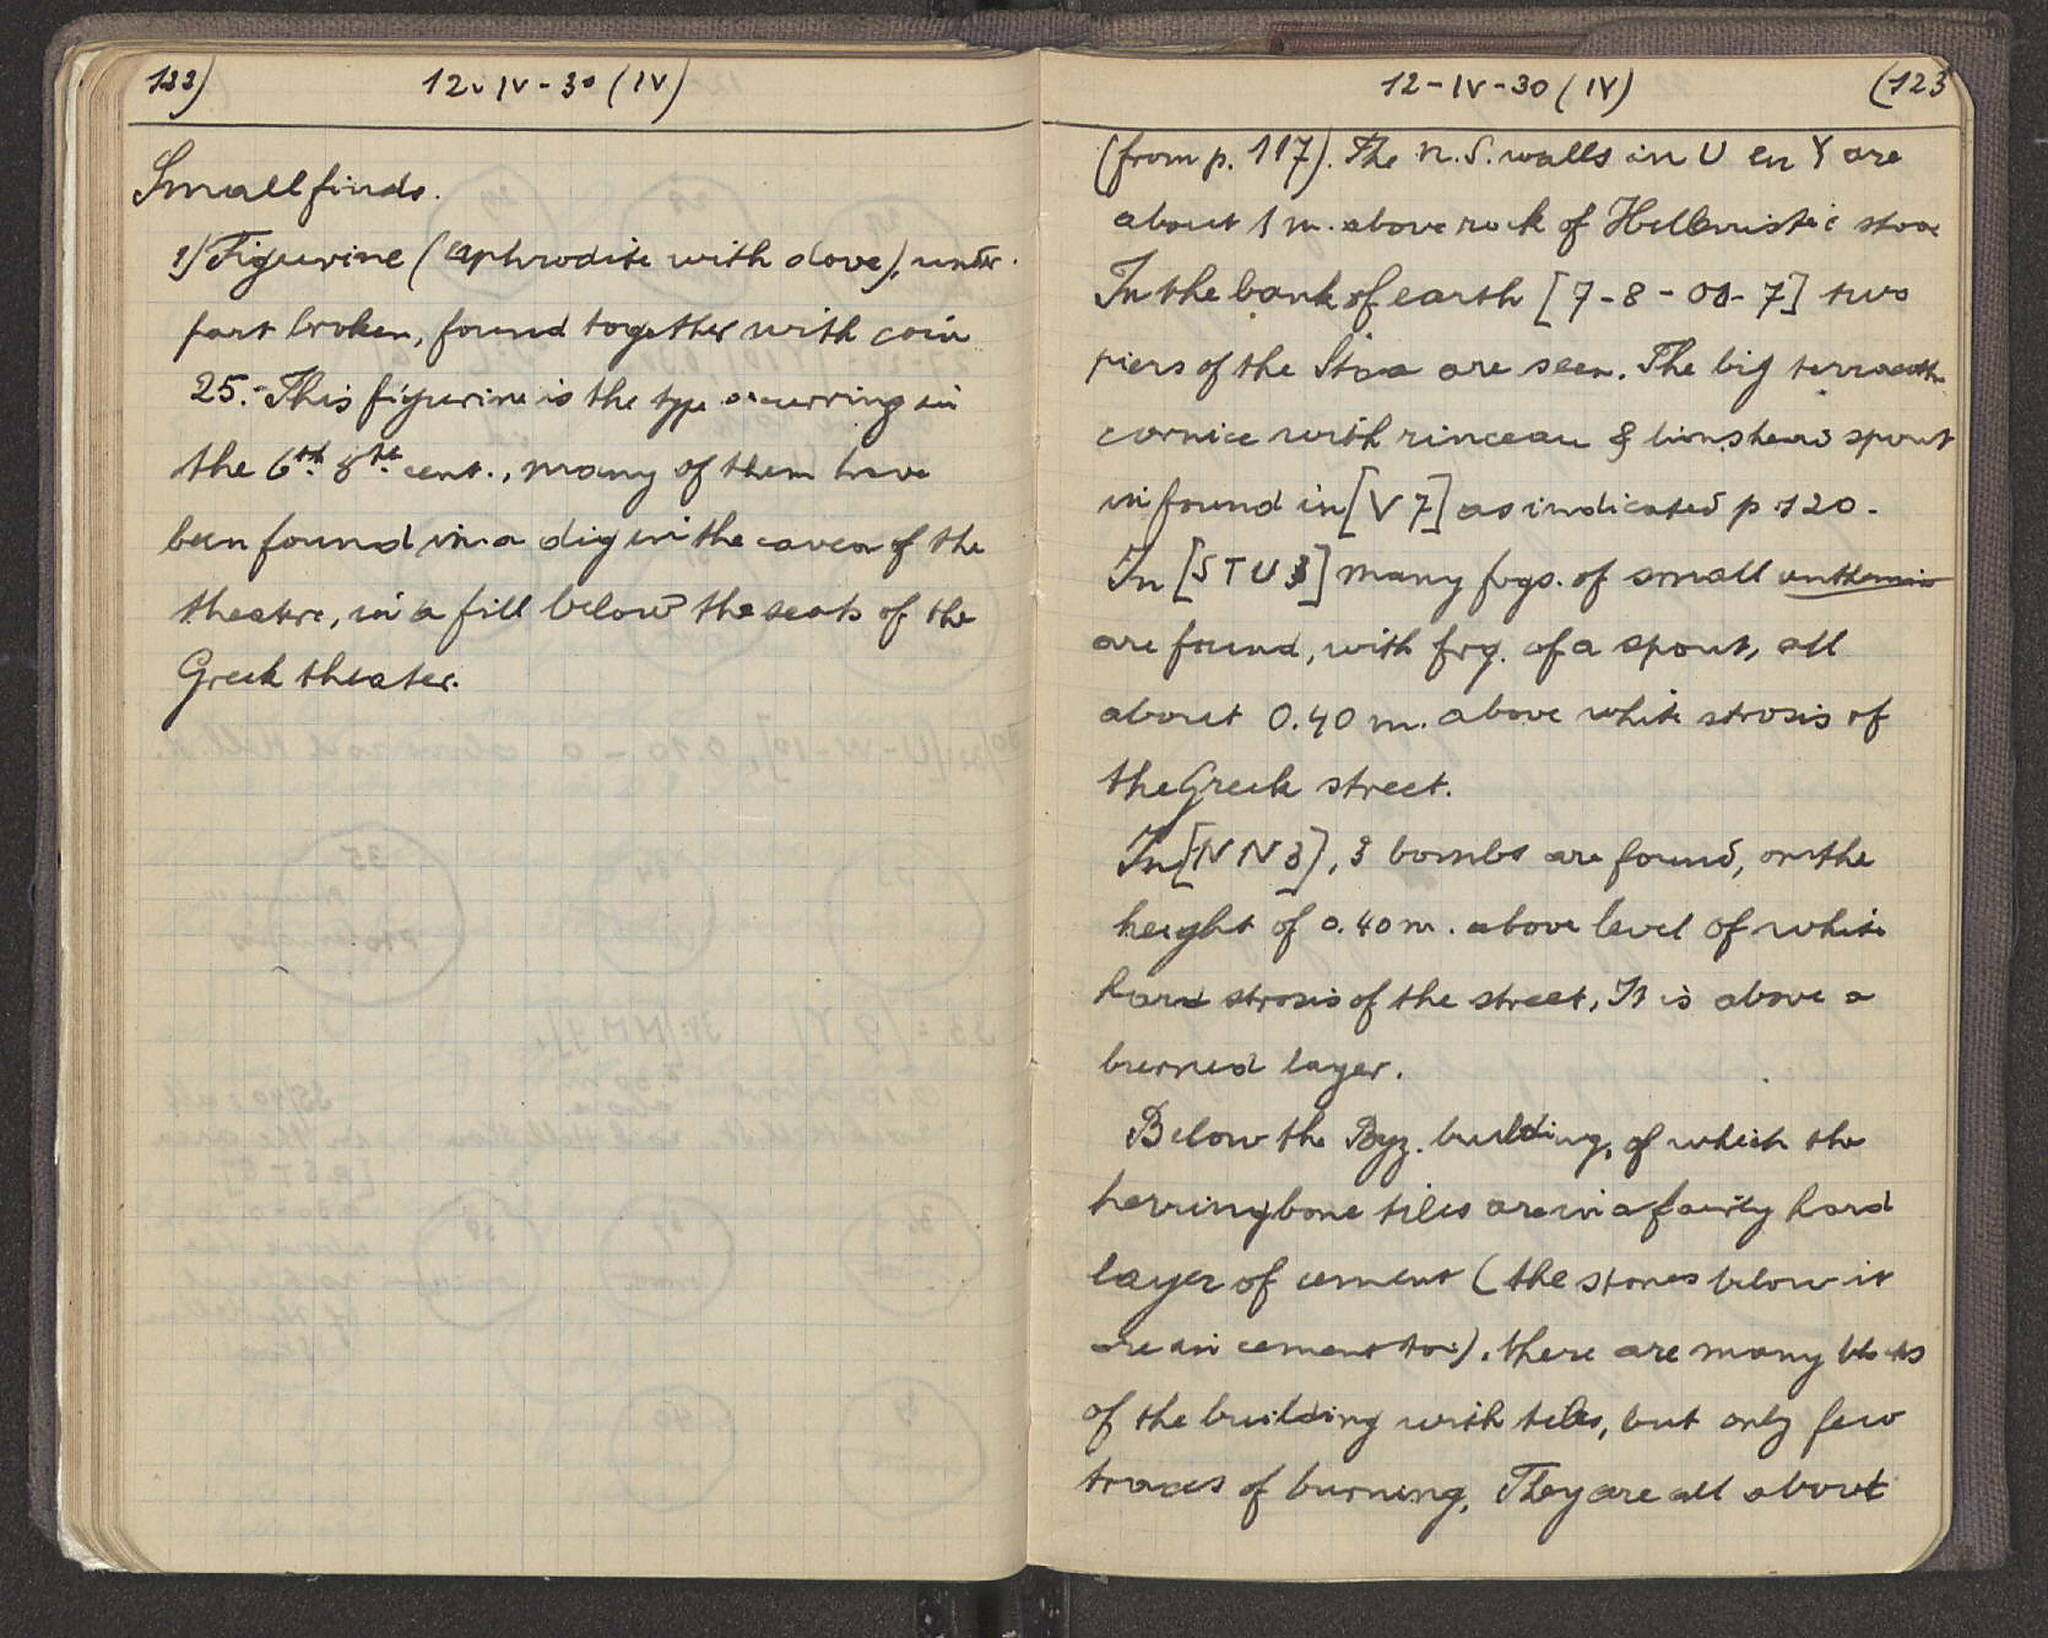 122)
12-IV-30 (IV)
Small finds.
1) Figurine (Aphrodite with dove), under
part broken, found together with coin
25. - This figurine is the type occurring in
the 6th 5th cent., many of them have
been found in a dig in the cavea of the
theatre, in a fill below the seats of the
Greek theater.
12-IV-30 (IV)
(123
(from p. 117). The N.S. walls in U en Y are
about 1 m. above rock of Hellenistic stoa
In the bank of earth [7-8-00-7] two
piers of the Stoa are seen. The big terracotta
cornice with rinceau & lionshead spout
is found in [V 7] as indicated p 120.
In [S T U 3] many frgs. of small anthemia
are found, with frg. of a spout, all
about 0.40 m. above white strosis of
the Greek street.
In [N N 3], 3 bombs are found, on the
height of 0.40 m. above level of white
hard strosis of the street, It is above a
burned layer.
Below the Byz. building, of which the
herringbone tiles are in a fairly hard
layer of cement (the stones below it
are in cement too), there are many blocks
of the building with tiles, but only few
traces of burning. They are all about